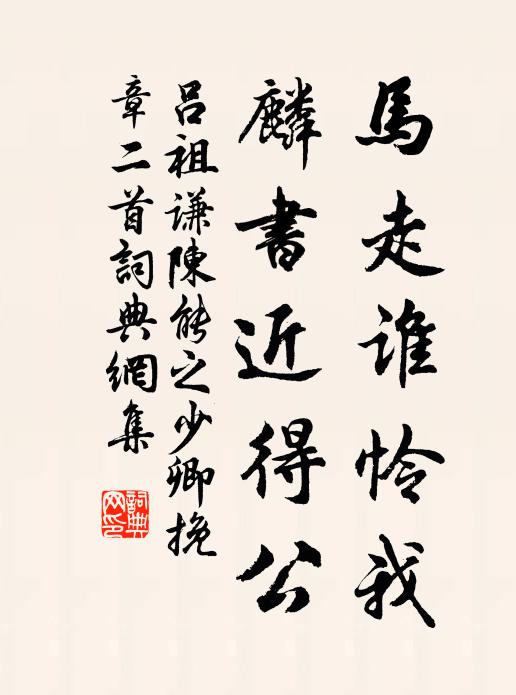 馬走誰憐我
麟書近得公
呂祖謙陳能之少卿挽
章二首詞典網集
詞典
网印